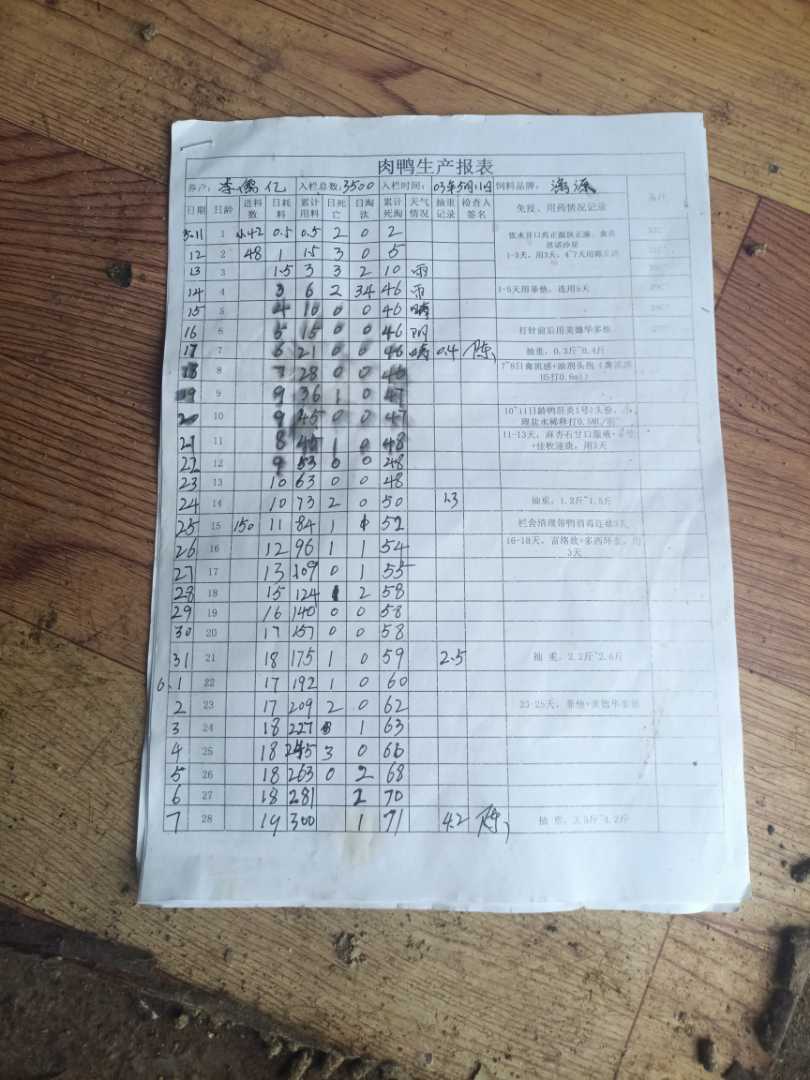 肉鸭生产报表
养户: 李 亿 入栏总数: 3500 入栏时间: 03年5月11日 饲料品牌:
日期 日龄 进料数 日耗料 累计用料 日死亡 日淘汰 累计死淘 天气情况 抽重记录 检查人签名 免疫、用药情况记录
5.11 1 42 0.5 0.5 2 0 2
12 2 48 1 1.5 3 0 5 1-3天，用3天，4~7天用
13 3 1.5 3 3 2 10 雨
14 4 3 6 2 34 46 雨 1-5天用 ，连用5天
15 5 4 10 0 0 46 晴
16 6 5 15 0 0 46 阴 打针前后用美德华多维
17 7 6 21 0 0 46 晴 0.4 陈 抽重，0.3斤~0.4斤
18 8 7 28 0 0 46 7~8日禽流感+ 打0.6ml）
19 9 9 36 1 0 47
20 10 9 45 0 0 47 10~11日龄鸭 1号2头份，
21 11 8 45 1 0 48 11-13天，麻杏石甘口服液+ ，用3天
22 12 9 53 0 0 48
23 13 10 63 0 0 48
24 14 10 73 2 0 50 1.3 抽重，1.2斤~1.5斤
25 15 150 11 84 1 52 栏舍清理带鸭消毒连续3天
26 16 12 96 1 1 54 16-18天， +多西环素，用3天
27 17 13 109 0 1 55
28 18 15 124 1 2 58
29 19 16 140 0 0 58
30 20 17 157 0 0 58
31 21 18 175 1 0 59 2.5 抽 重，2.2斤~2.6斤
6.1 22 17 192 1 0 60
2 23 17 209 2 0 62 23-25天，
3 24 18 227 1 63
4 25 18 245 3 0 66
5 26 18 263 0 2 68
6 27 18 281 2 70
7 28 19 300 1 71 4.2 陈 抽 重，3.8斤~4.2斤